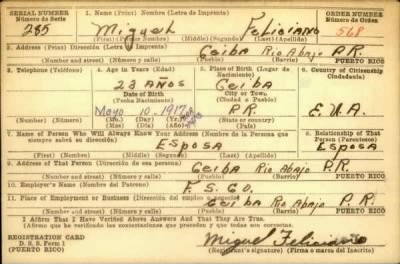 SERIAL NUMBER 1. Name (Print) Nombre (Letra de Imprenta) ORDER NUMBER
Número de Serie Número de Orden
285 Miguel Feliciano 568
(First) (Nombre) (Middle) (Segundo) (Last) (Apellido)
2. Address (Print) Dirección (Letra de Imprenta)
Ceiba Rio Abajo P.R.
Number and street) (Número y calle) (Town) (Pueblo) (Barrio) PUERTO RICO
3. Telephone (Teléfono) 4. Age in Years (Edad) 5. Place of Birth (Lugar de Nacimiento) 6. Country of Citizenship (Ciudadanía)
23 AÑOS Ceiba
Date of Birth City or Town.
(Fecha Nacimiento) (Ciudad o Pueblo)
Mayo 10 - 1917 P.R. E.U.A.
(Mo.) (Day) (Yr.) State or country)
(Mes) (Día) (Año) (País)
7. Name of Person Who Will Always Know Your Address (Nombre de la Persona que siempre sabrá su dirección) 8. Relationship of That Person (Parentesco)
Esposa Esposa
(First) (Nombre) (Middle) (Segundo) (Last) (Apellido)
9. Address of That Person (Dirección de esa persona)
Ceiba Rio Abajo P.R.
Number and street) (Número y calle) (Town) (Pueblo) (Barrio) PUERTO RICO
10. Employer's Name (Nombre del Patrono)
F. S. CO.
11. Place of Employment or Business (Dirección del empleo o negocio)
Ceiba Rio Abajo P.R.
Number and street) (Número y calle) (Town) (Pueblo) (Barrio) PUERTO RICO
I Affirm That I Have Verified Above Answers And That They Are True.
(Afirmo que he verificado las contestaciones que preceden y que son ciertas)
REGISTRATION CARD
D. S. S. Form 1
(PUERTO RICO)
Miguel Feliciano
(Registrant's signature) (Firma o marca del Inscrito)